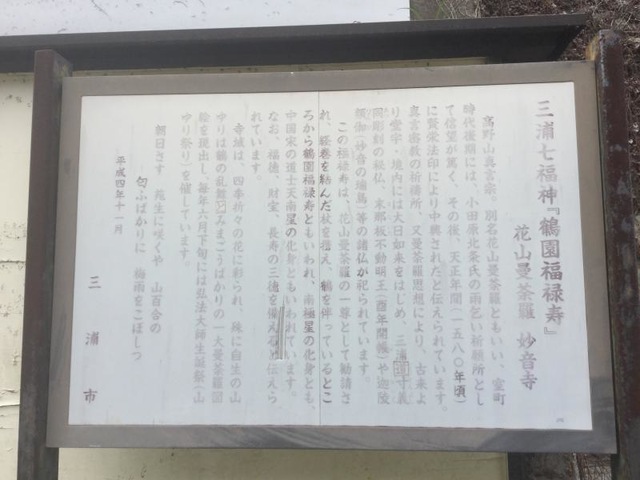 三浦七福神『鶴園福禄寿』
花山曼荼羅 妙音寺
高野山真言宗。別名花山曼荼羅ともいい、室町
時代後期には、小田原北条氏の雨乞い祈願所とし
て信望が篤く、その後、天正年間(一五八〇年頃)
に賢栄法印により中興されたと伝えられています。
真言密教の祈祷所、又曼荼羅思想により、古来よ
り愛宕、境内には大日如来をはじめ、三浦
同彫刻の秘仏、末那板不動明王(酉年開帳)や迦陵
頻伽(妙音の端鳥)等の諸仏が祀られています。
この福禄寿は、花山曼荼羅の一尊として勧請さ
れ、腰巻を結んだ杖を携え、鶴を伴っているとこ
ろから鶴園福禄寿ともいわれ、南極星の化身とも
中国宋の道士天南星の化身ともいわれています。
なお、福徳、財宝、長寿の三徳を備えると伝えら
れています。
寺域は、四季折々の花に彩られ、殊に自生の山
ゆりは鶴の乱舞とみまごうばかりの一大曼荼羅図
絵を現出し、毎年六月下旬には弘法大師生誕祭(山
ゆり祭り)を催しています。
朝日さす 苑生に咲くや 山百合の
匂ふばかりに 梅雨をこぼしつ
平成四年十一月
三浦市